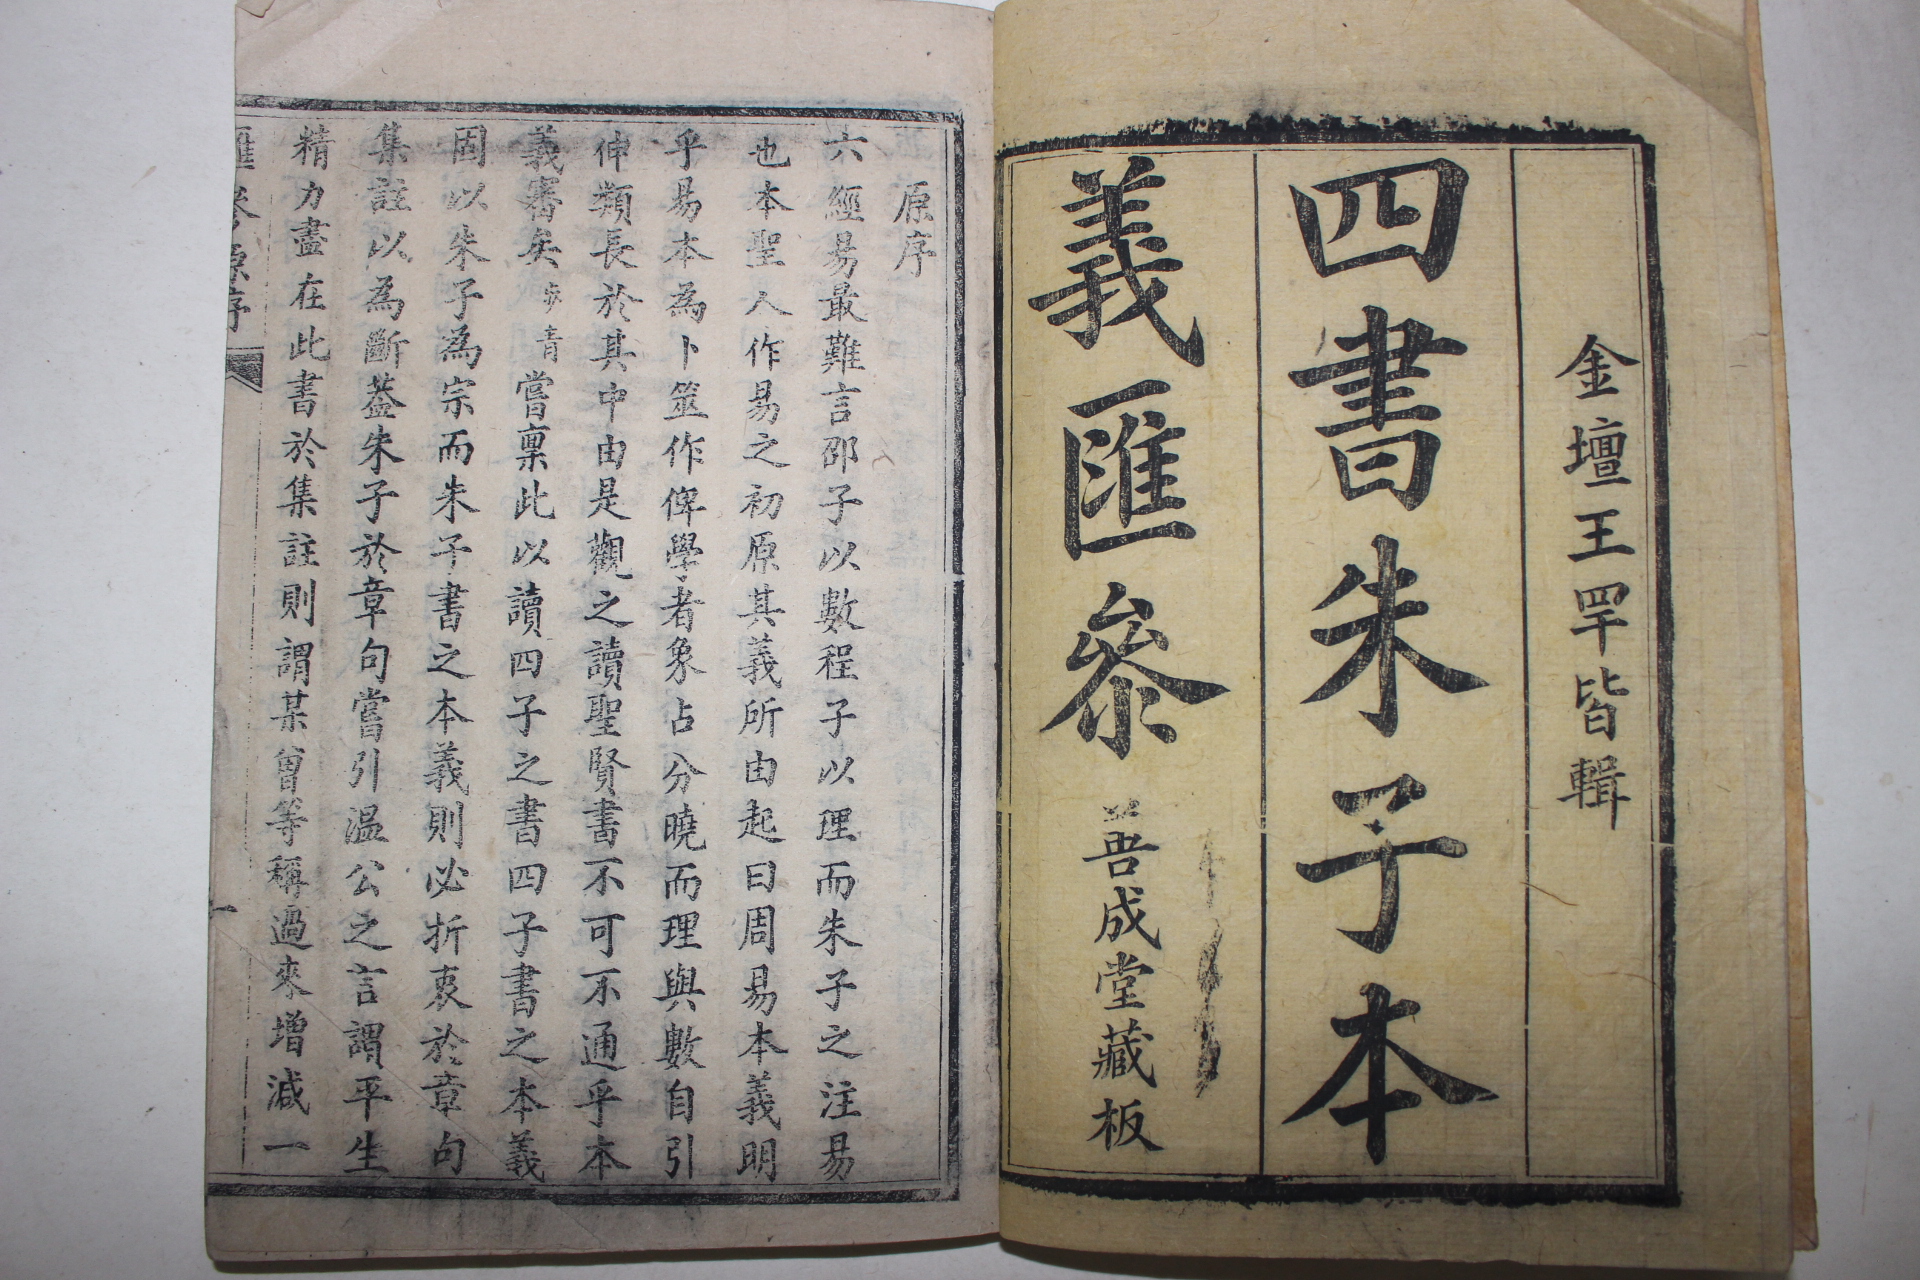 金壇王罕皆輯
四書朱子本
義匯參
善成堂藏板
原序
六經易最難言邵子以數程子以理而朱子之注易
也本聖人作易之初原其義所由起曰周易本義明
乎易本為卜筮作俾學者象占分曉而理與數自引
伸類長於其中由是觀之讀聖賢書不可不通乎本
義審矣步青嘗稟此以讀四子之書四子書之本義
固以朱子為宗而朱子書之本義則必折衷於章句
集註以為斷葢朱子於章句嘗引温公之言謂平生
精力盡在此書於集註則謂某曾等稱過來增減一
匯參原序
一